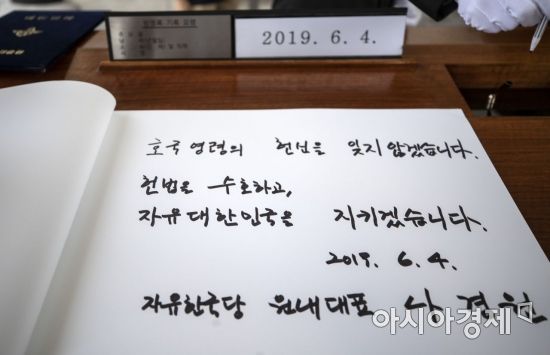 2019. 6. 4.
호국영령의 헌신을 잊지 않겠습니다.
헌법을 수호하고,
자유대한민국은 지키겠습니다.
2019. 6. 4.
자유한국당 원내대표 나경원
아시아경제